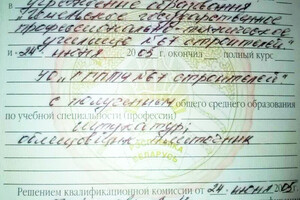 учреждение образования
"Гомельское государственное
профессионально-техническое
училище №67 строителей"
и 24 июня 2005 г. окончил полный курс
УО "ГГПТУ №67 строителей"
с получением общего среднего образования
по учебной специальности (профессии)
штукатур;
облицовщик-плиточник
БЕЛАРУСЬ
Решением квалификационной комиссии от 24 июня 2005